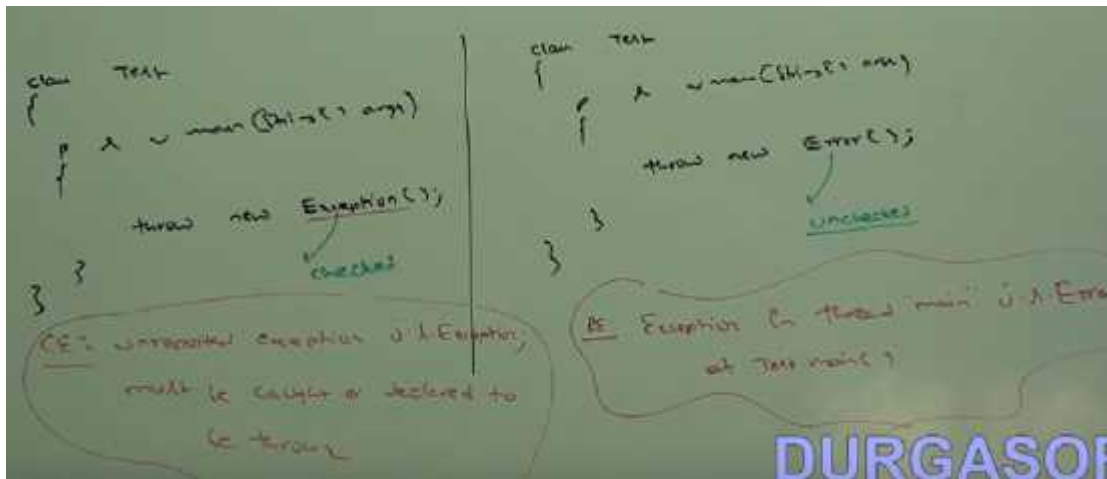 class Test
{
p s v main(String[] args)
{
throw new Exception();
checked
}
}
CE: unreported exception j.l.Exception;
must be caught or declared to
be thrown
class Test
{
p s v main(String[] args)
{
throw new Error();
unchecked
}
}
RE Exception in thread "main" j.l.Error
at Test.main()
DURGASOF